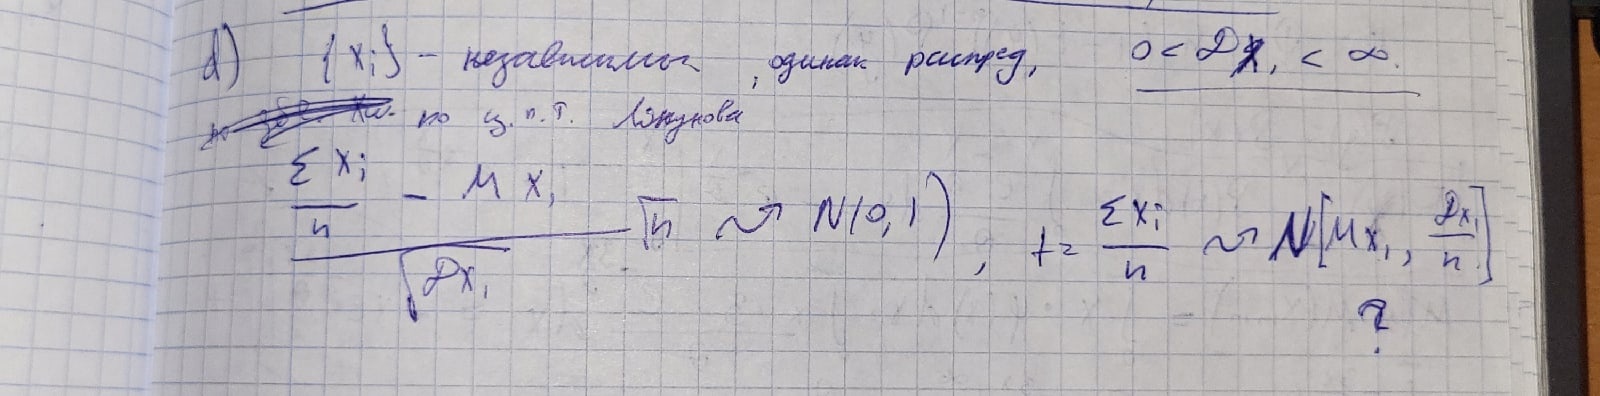 d) {xᵢ} - независимы, одинак распред, 0 < Dx₁ < ∞.
по ц.п.т. Ляпунова
(Σxᵢ/n - Mx₁)/√Dx₁ √n ⇝ N(0,1), t = Σxᵢ/n ⇝ N[Mx₁, Dx₁/n]
?